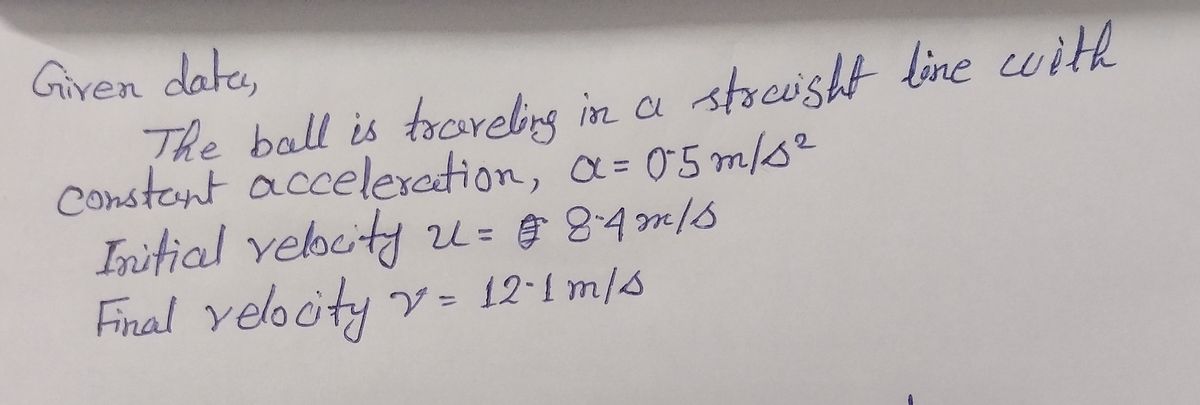 Given data,
The ball is traveling in a straight line with
constant acceleration, a = 0.5 m/s²
Initial velocity u = 8.4 m/s
Final velocity v = 12.1 m/s